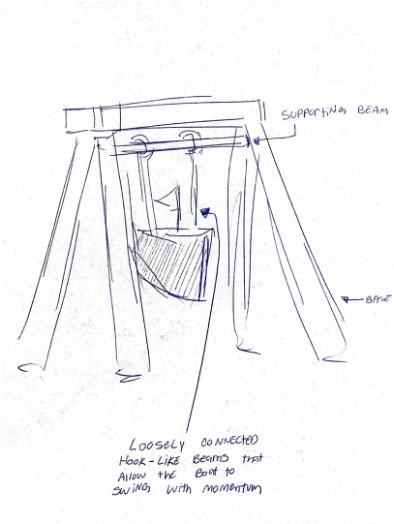 SUPPORTING BEAM
BASE
LOOSELY CONNECTED
HOOK-LIKE BEAMS that
Allow the Boat to
SWING with momentum